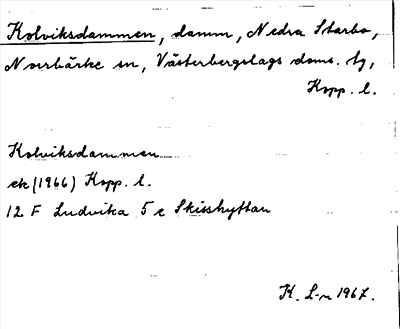 Kolviksdammen, damm, Nedra Starbo,
Norrbärke sn, Västerbergslags doms. tg,
Kopp. l.
Kolviksdammen
ek (1966) Kopp. l.
12 F Ludvika 5 c Skisshyttan
K. L-m 1967.